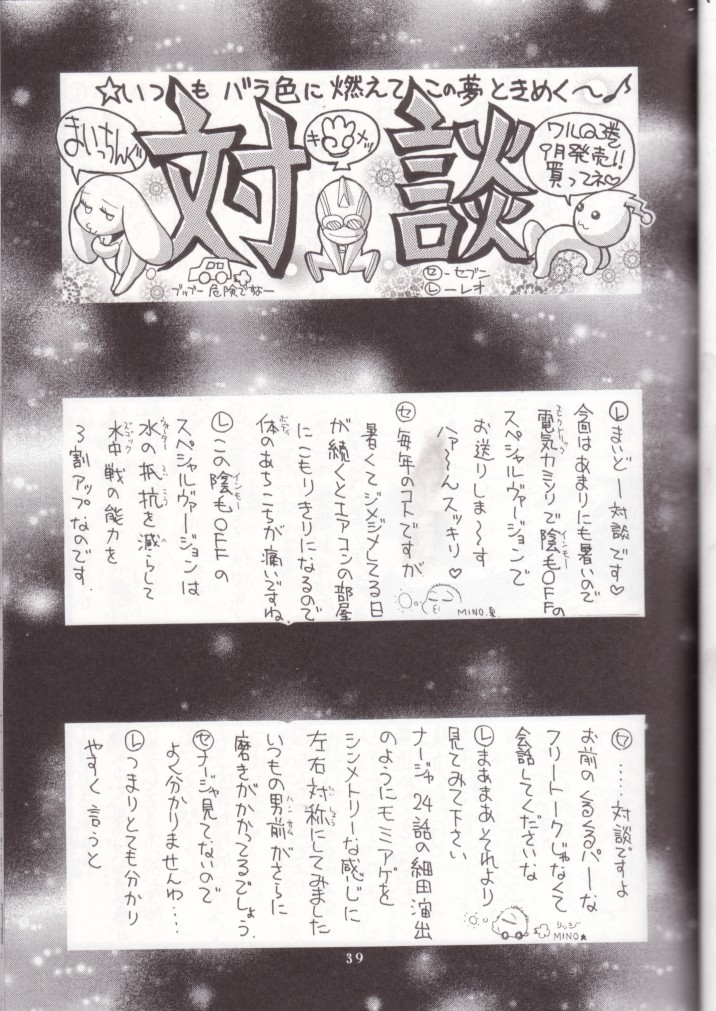 ☆いつも バラ色に燃えて この夢ときめく〜♪
まいっちんぐ
対談
キメッ
ワルQ3巻
9月発売!!
買ってネ♡
ブッブー 危険でなー
セ-セブン
レ-レオ
レ まいどー対談です♡
今回はあまりにも暑いので
電気カミソリで陰毛OFFの
スペシャルヴァージョンで
お送りしま〜〜す
ハァ〜〜んスッキリ♡
セ 毎年のコトですが
暑くてジメジメしてる日
が続くとエアコンの部屋
にこもりきりになるので
体のあちこちが痛いですね。
レ この陰毛OFFの
スペシャルヴァージョンは
水の抵抗を減らして
水中戦の能力を
3割アップなのです。
MINO.
セ ……対談ですよ
お前のくるくるパーな
フリートークじゃなくて
会話してくださいな
レ まあまあそれより
見てみて下さい
ナージャ24話の細田演出
のようにモミアゲを
シンメトリーな感じに
左右対称にしてみました
いつもの男前がさらに
磨きがかかってるでしょう。
セ ナージャ見てないので
よく分かりませんわ…
レ つまりとても分かり
やすく言うと
MINO★
39